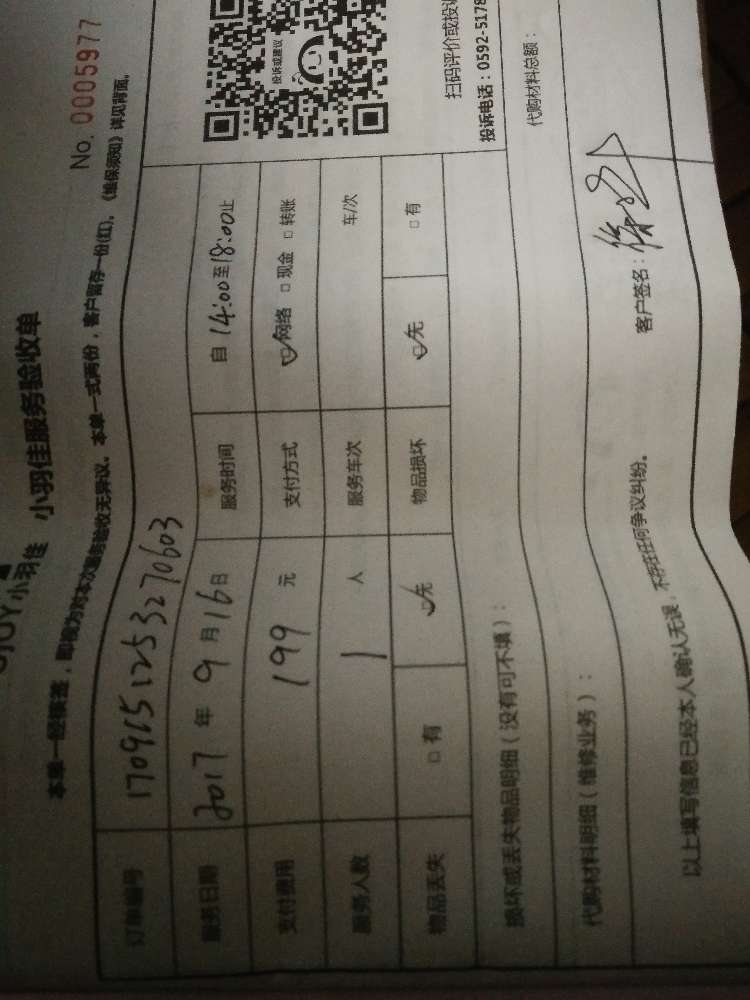 小羽佳 小羽佳服务验收单
No. 0005977
本单一经填签，即视为对本次服务验收无异议。本单一式两份，客户留存一份(红)，《维保须知》详见背面。
订单编号 1709151253270603
服务日期 2017年9月16日 服务时间 自14:00至18:00止
支付费用 199元 支付方式 ☑网络 □现金 □转账
服务人数 1人 服务车次 车/次
物品丢失 □有 ☑无 物品损坏 ☑无 □有
损坏或丢失物品明细（没有可不填）：
投诉或建议
扫码评价或投诉
投诉电话：0592-5178
代购材料明细（维修业务）： 代购材料总额：
以上填写信息已经本人确认无误，不存在任何争议纠纷。 客户签名：